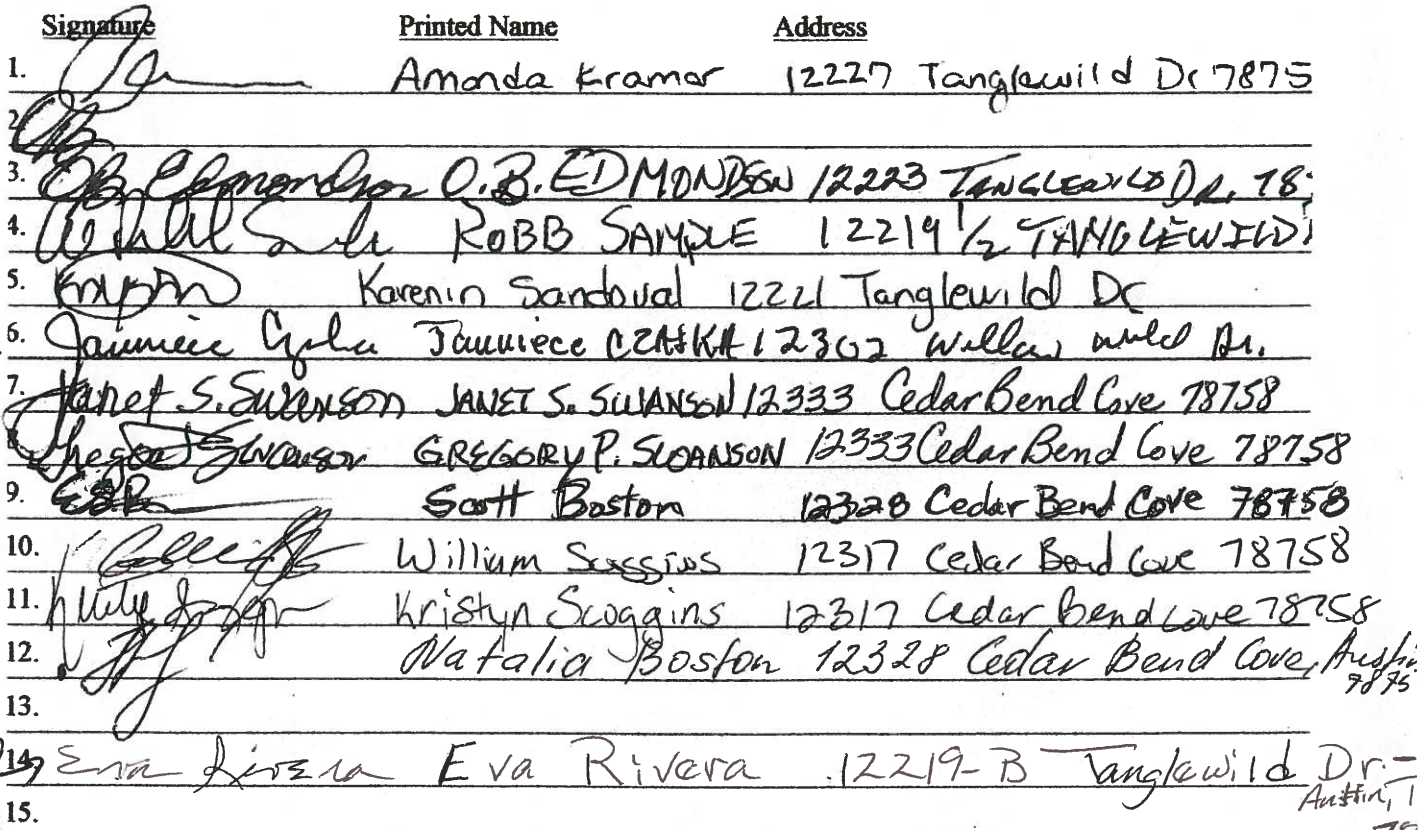 Signature Printed Name Address
1. Amanda Kramer 12227 Tanglewild Dr 7875
2.
3. OB Edmondson O.B. EDMONDSON 12223 TANGLEWILD DR. 78
4. ROBB SAMPLE 12219 1/2 TANGLEWILD
5. Karenin Sandoval 12221 Tanglewild Dr
6. Jauniece Jauniece CZAJKA 12302 Willow wild Dr.
7. Janet S. Swanson JANET S. SWANSON 12333 Cedar Bend Cove 78758
Swanson GREGORY P. SWANSON 12333 Cedar Bend Cove 78758
9. Scott Boston 12328 Cedar Bend Cove 78758
10. William Scoggins 12317 Cedar Bend Cove 78758
11. Kristyn Scoggins 12317 Cedar Bend Cove 78758
12. Natalia Boston 12328 Cedar Bend Cove, Austin
7875
13.
14. Eva Rivera Eva Rivera 12219-B Tanglewild Dr. -
Austin, T
78
15.